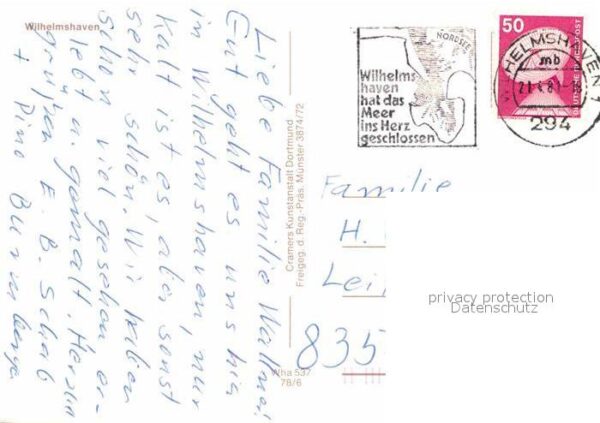 Wilhelmshaven
Liebe Familie
Gut geht es uns hier
in Wilhelmshaven, nur
kalt ist es, aber sonst
sehr schön. Wir haben
schon viel gesehen er-
lebt u. gemalt. Herzlich
grüßen E. B. Schab
+ Dino
Cramers Kunstanstalt Dortmund
Freigeg. d. Reg.-Präs. Münster 3874/72
Wha 537
78/6
NORDSEE
Wilhelms
haven
hat das
Meer
ins Herz
geschlossen
50
DEUTSCHE BUNDESPOST
WILHELMSHAVEN 1
mb
294
Familie
H.
Lei
835
privacy protection
Datenschutz